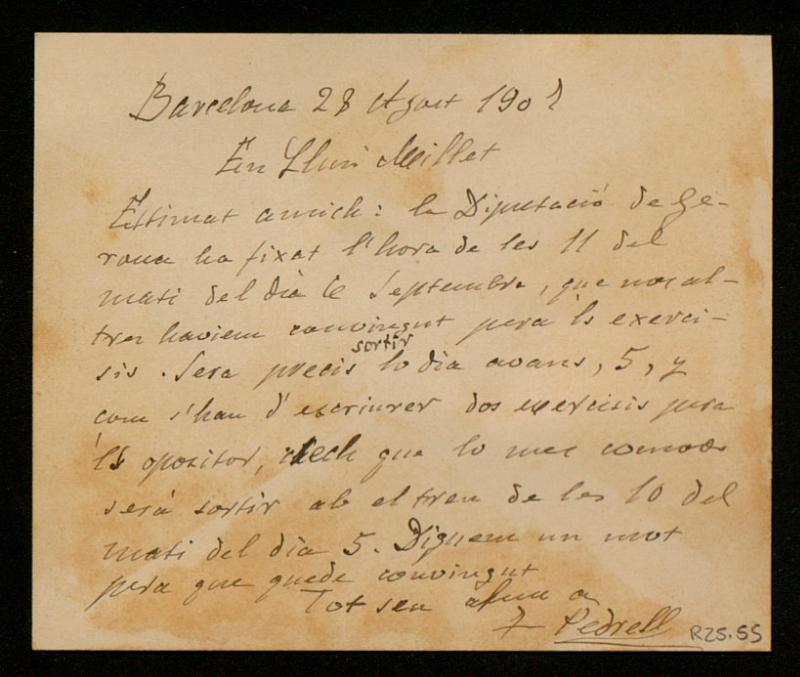 Barcelona 28 Agost 190?
En Lluis Millet
Estimat amich: la Diputació de Ge-
rona ha fixat l'hora de les 11 del
mati del dia 6 Septembre, que nosal-
tres haviem convingut pera 'ls exerci-
sis. Sera precis sortir lo dia avans, 5, y
com s'han d'escriurer dos exercisis pera
'ls opositor, crech que lo mes comodo
será sortir ab el tren de les 10 del
mati del dia 5. Diguem un mot
pera que quede convingut
Tot seu afmm a
F Pedrell
R25.55